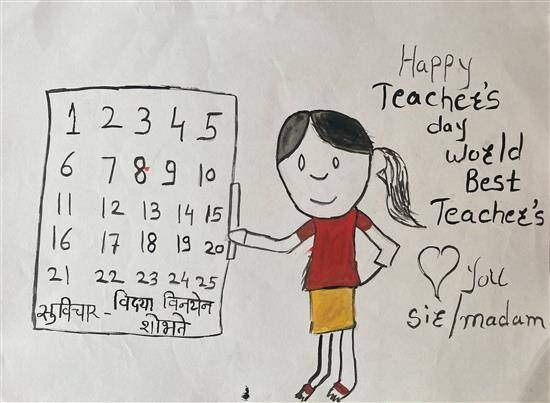 1 2 3 4 5
6 7 8 9 10
11 12 13 14 15
16 17 18 19 20
21 22 23 24 25
सुविचार - विद्या विनयेन
शोभते
Happy
Teacher's
day
World
Best
Teacher's
♡ you
Sir/madam